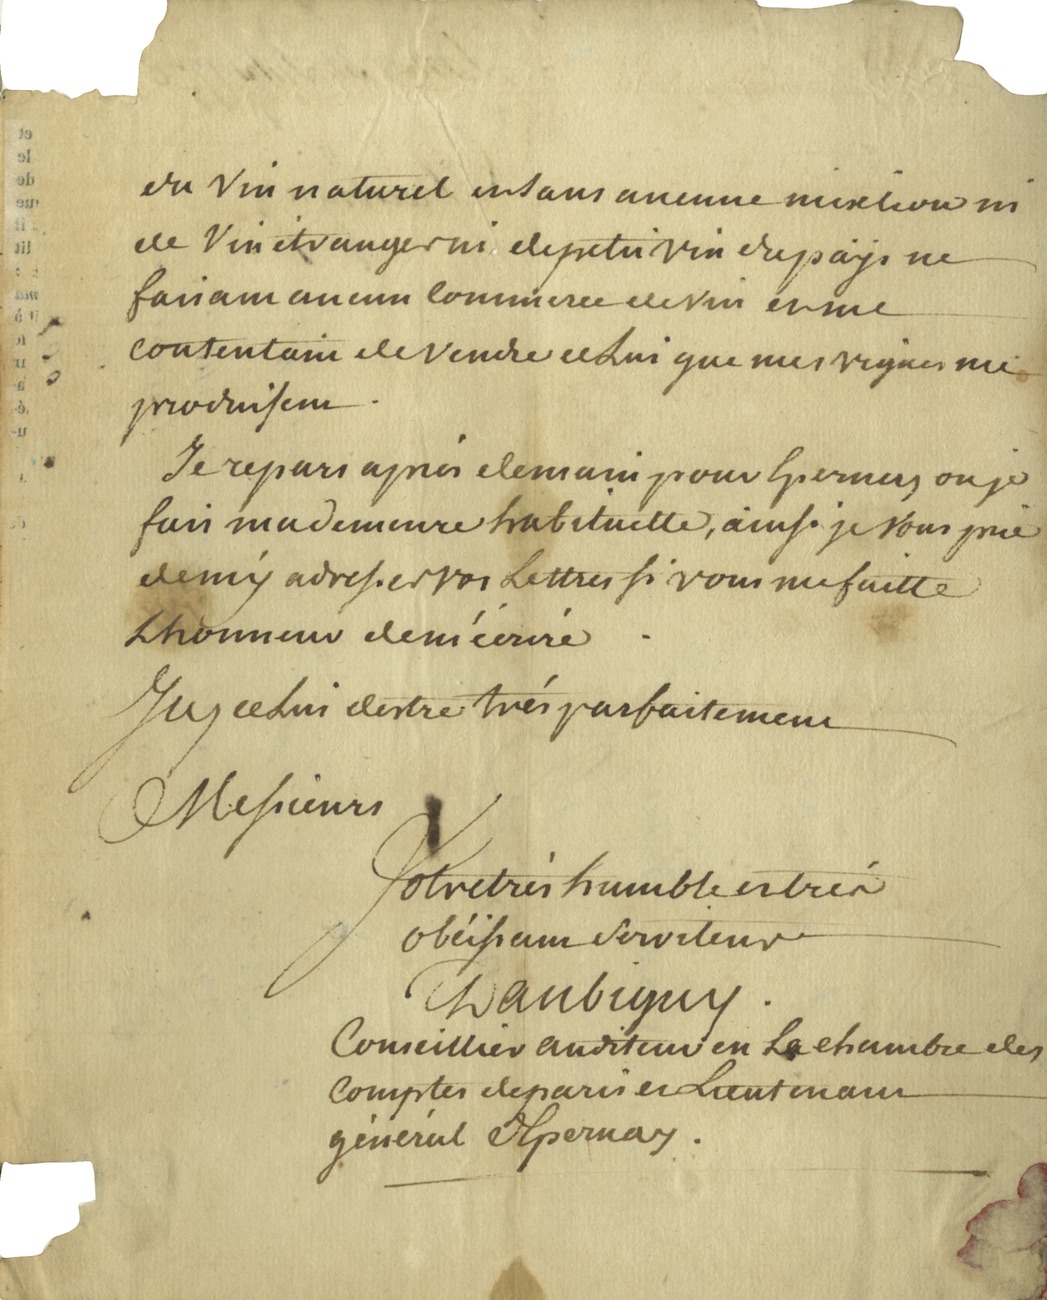 du vin naturel et sans aucune mixtion ni
de vin étranger ni de petit vin du païs ne
faisant aucun Commerce de vin et me
contentant de vendre celui que mes vignes me
produisent.
Je repars après demain pour Epernay, ou je
fais ma demeure habituelle, ainsi je vous prie
de m'y adresser vos Lettres si vous me faitte
L'honneur de m'écrire.
J'ay celui destre très parfaitement
Messieurs
Votre très humble et très
obéissant Serviteur
Daubigny.
Conseillier auditeur en La chambre des
comptes de paris et Lieutenant
général d'Epernay.